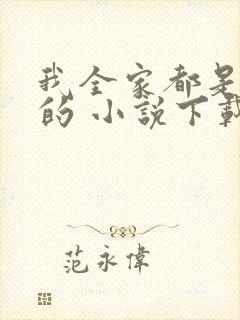 我全家都是
的 小說下載
范永偉